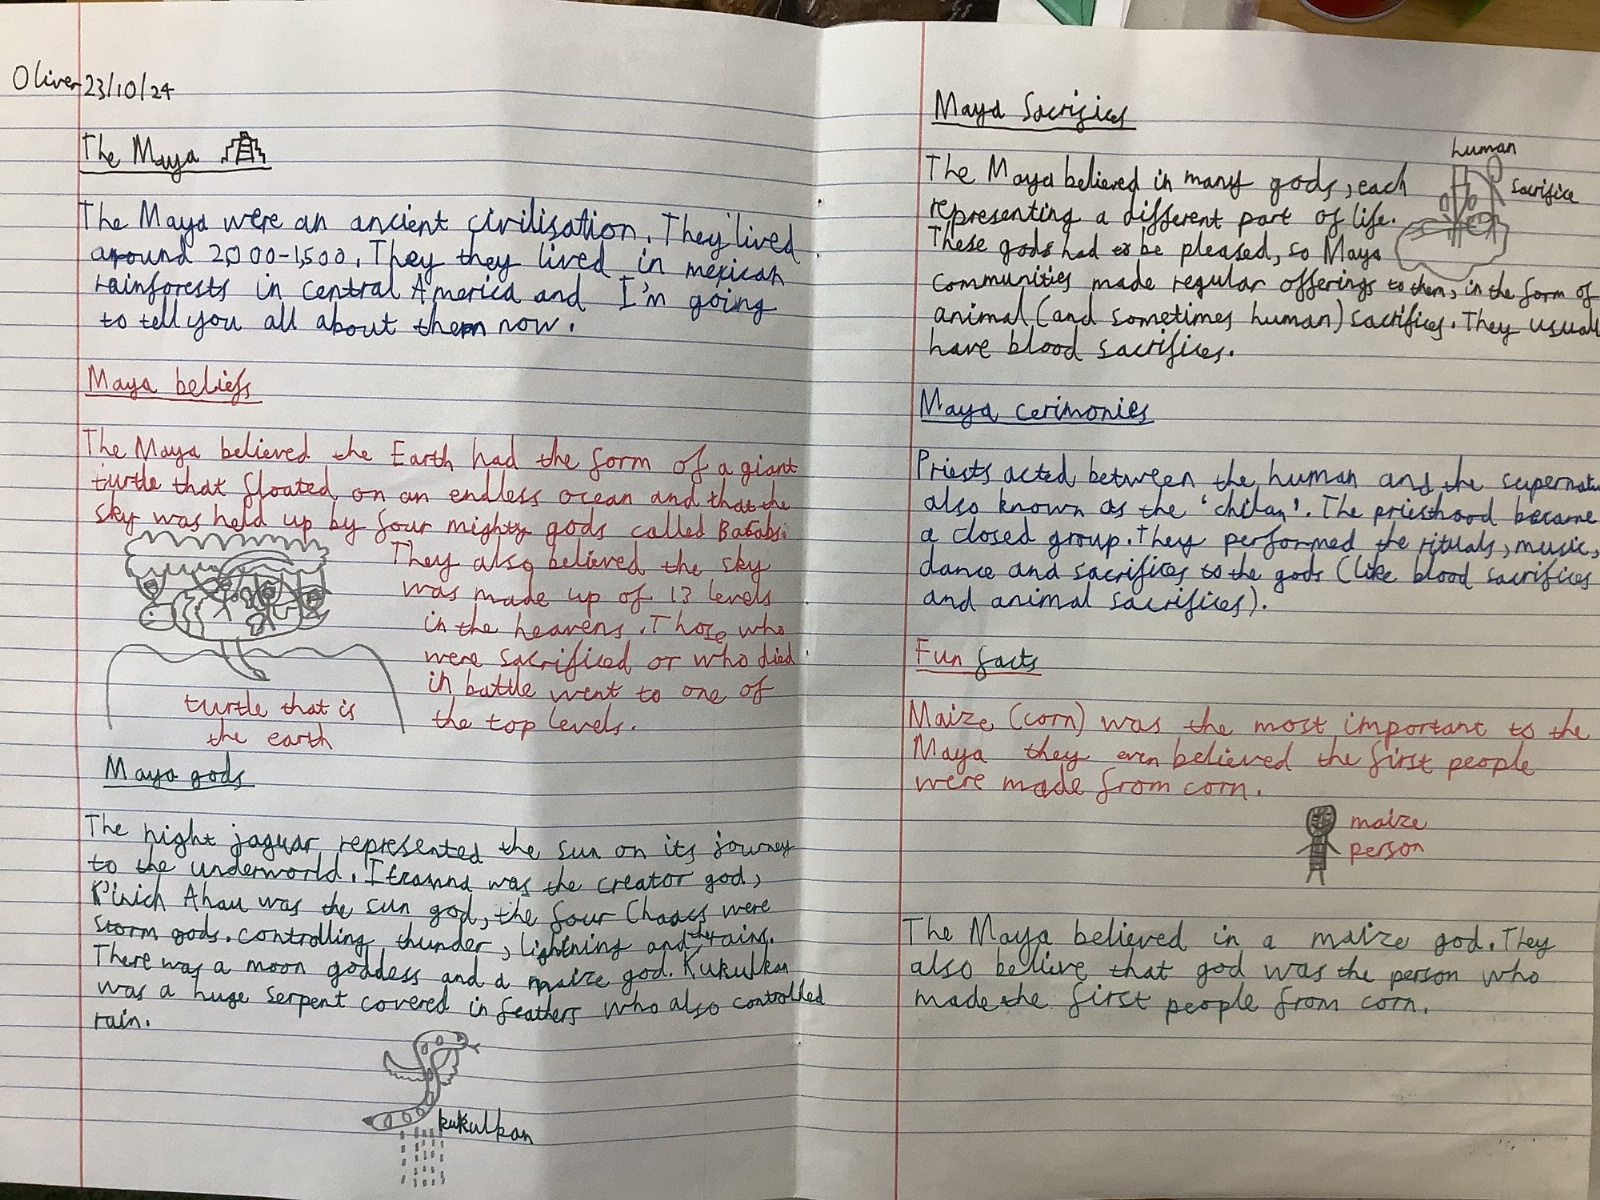 Oliver 23/10/24
The Maya
The Maya were an ancient civilisation. They lived
around 2,000-1,500. They they lived in mexican
rainforests in central America and I'm going
to tell you all about them now.
Maya beliefs
The Maya believed the Earth had the form of a giant
turtle that floated on an endless ocean and that the
sky was held up by four mighty gods called Bacabs.
They also believed the sky
was made up of 13 levels
in the heavens. Those who
were sacrificed or who died
in battle went to one of
the top levels.
turtle that is
the earth
Maya gods
The night jaguar represented the sun on its journey
to the underworld. was the creator god,
K'inich Ahau was the sun god, the four Chaacs were
storm gods. controlling thunder, lightning and the rains.
There was a moon goddess and a maize god. Kukulkan
was a huge serpent covered in feathers who also controlled
rain.
kukulkan
Maya Sacrifices
human
sacrifice
The Maya believed in many gods, each
representing a different part of life.
These gods had to be pleased, so Maya
communities made regular offerings to them, in the form of
animal (and sometimes human) sacrifices. They usuall
have blood sacrifices.
Maya cerimonies
Priests acted between the human and the supernatu
also known as the 'chilan'. The priesthood became
a closed group. They performed the rituals, music,
dance and sacrifices to the gods (like blood sacrifices
and animal sacrifices).
Fun facts
Maize (corn) was the most important to the
Maya they even believed the first people
were made from corn.
maize
person
The Maya believed in a maize god. They
also believe that god was the person who
made the first people from corn.